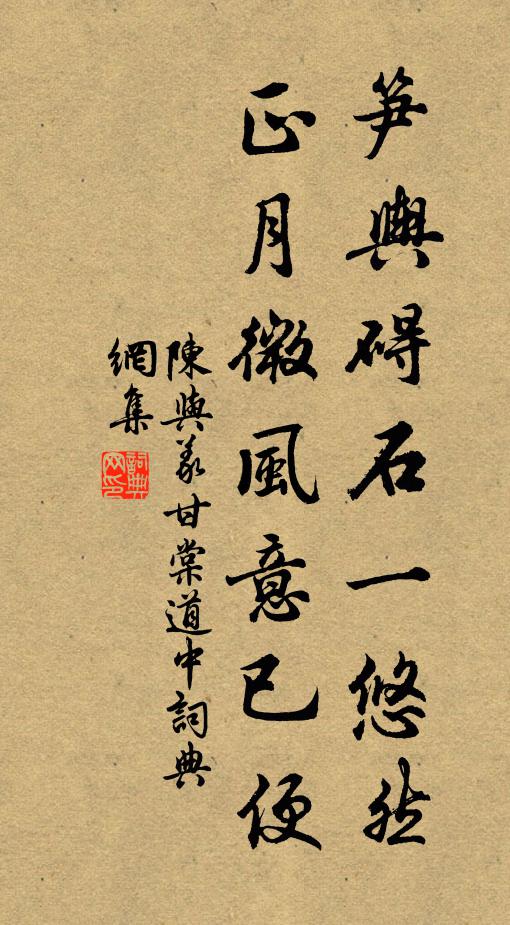 笋輿碍石一悠然
正月微風意已便
陳與義甘棠道中詞典
網集
詞典網印